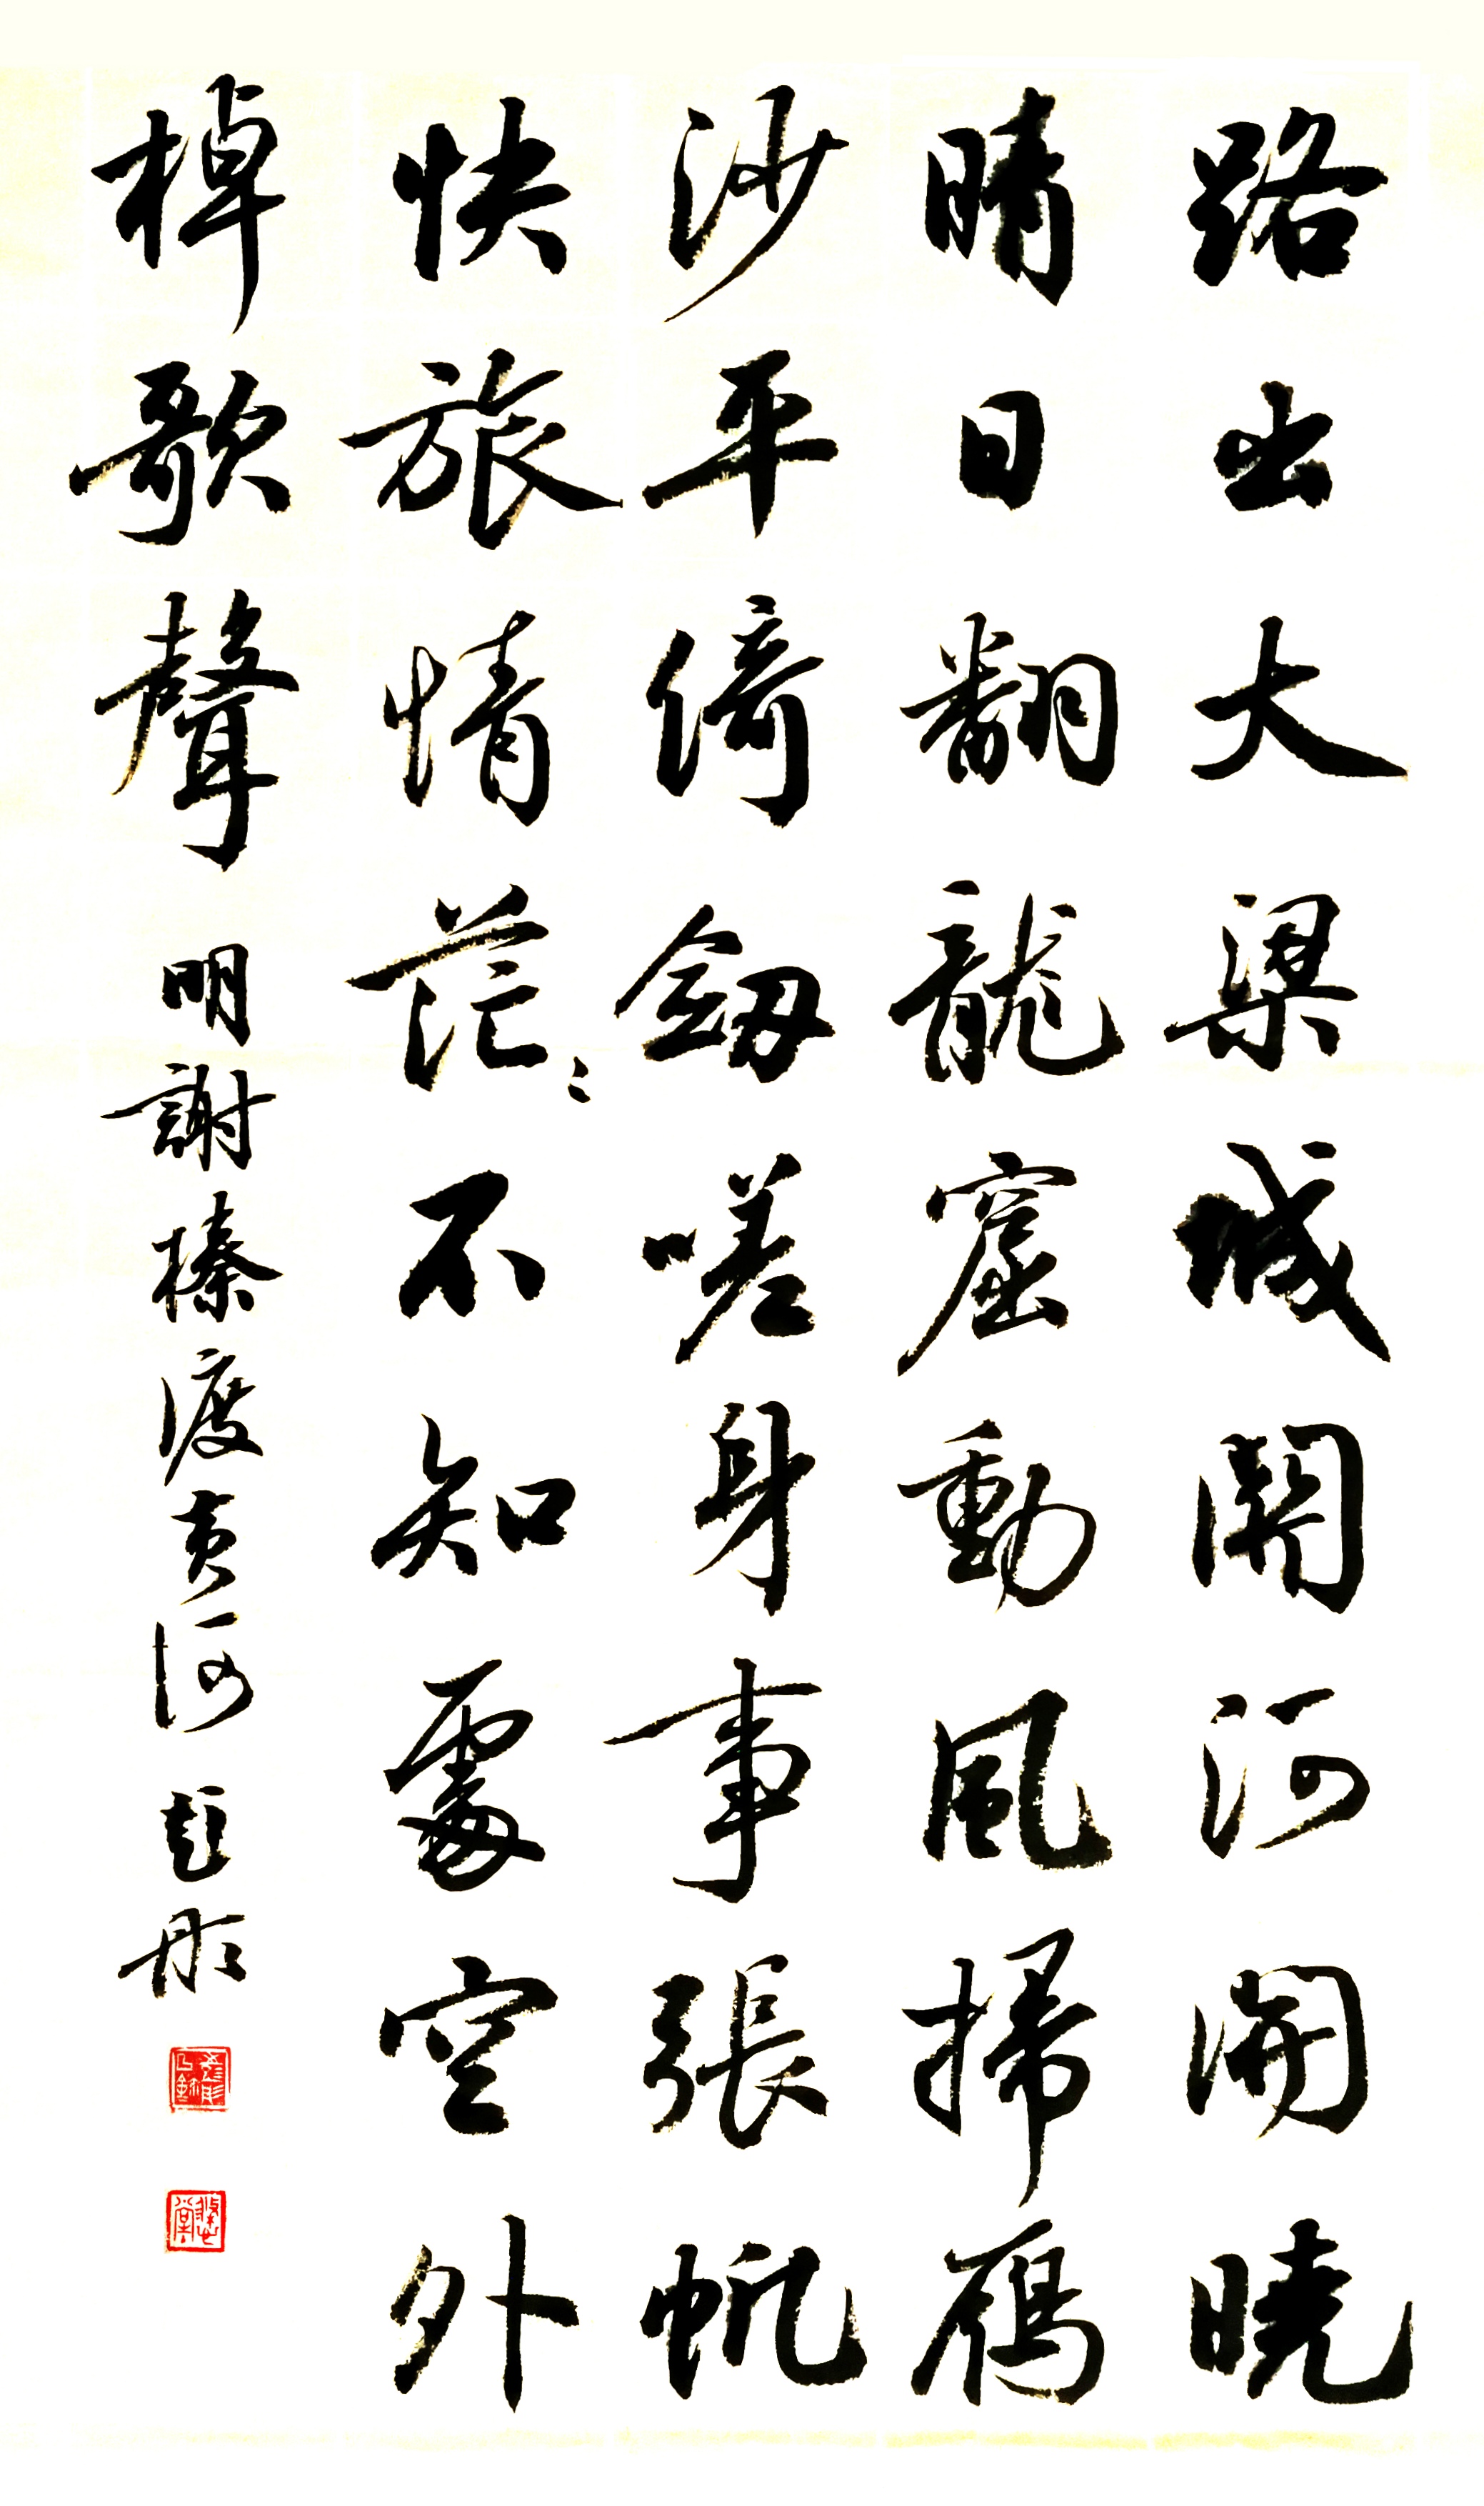 路出大梁城關河開曉
晴日翻龍窟動風掃雁
沙平倚劒嗟身事張帆
快旅情茫〻不知處空外
棹歌聲 明謝榛渡黃河